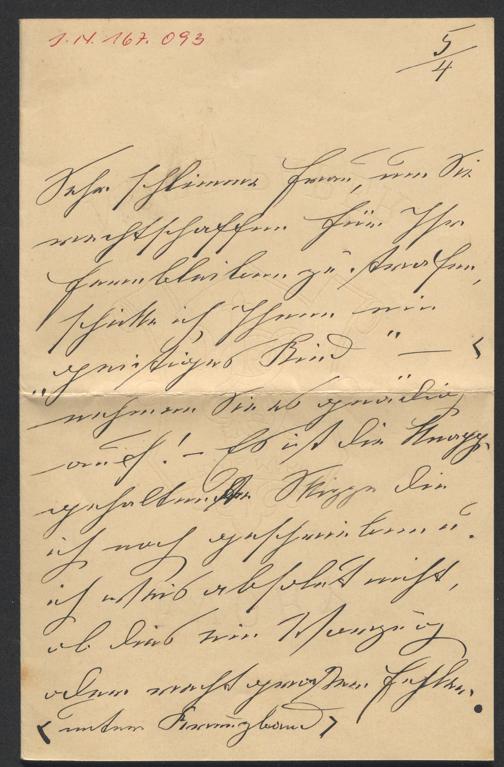 J.N. 167.093
5/4
Sehr schlimme Frau, um Sie
rechtschaffen für Ihr
fernbleiben zu strafen,
schicke ich Ihnen ein
geistiges Kind" — <
"nehmen Sie es gnädig
auf! – Es ist die knapp
gehaltene Skizze die
ich noch geschrieben u.
ich weiß absolut nicht,
ob dies ein Vorzug
oder recht großer Fehler.
< unter Kreuzband >